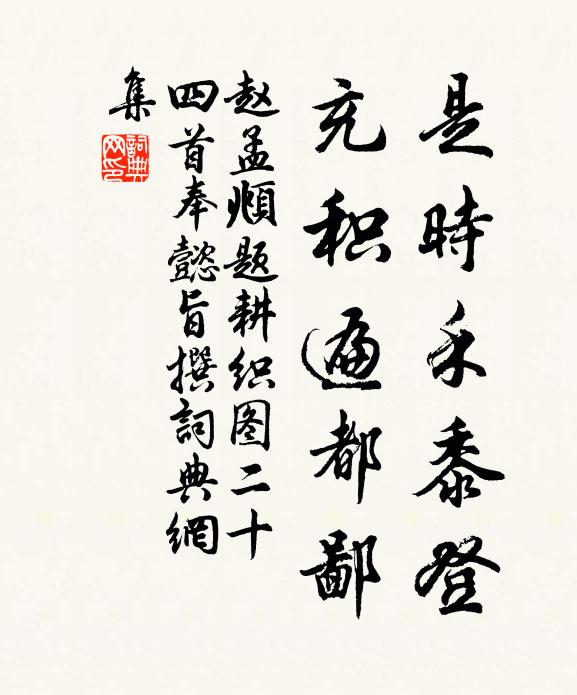 是時禾黍登
充积遍都鄙
赵孟頫题耕织图二十
四首奉懿旨撰詞典網
集
詞典網印